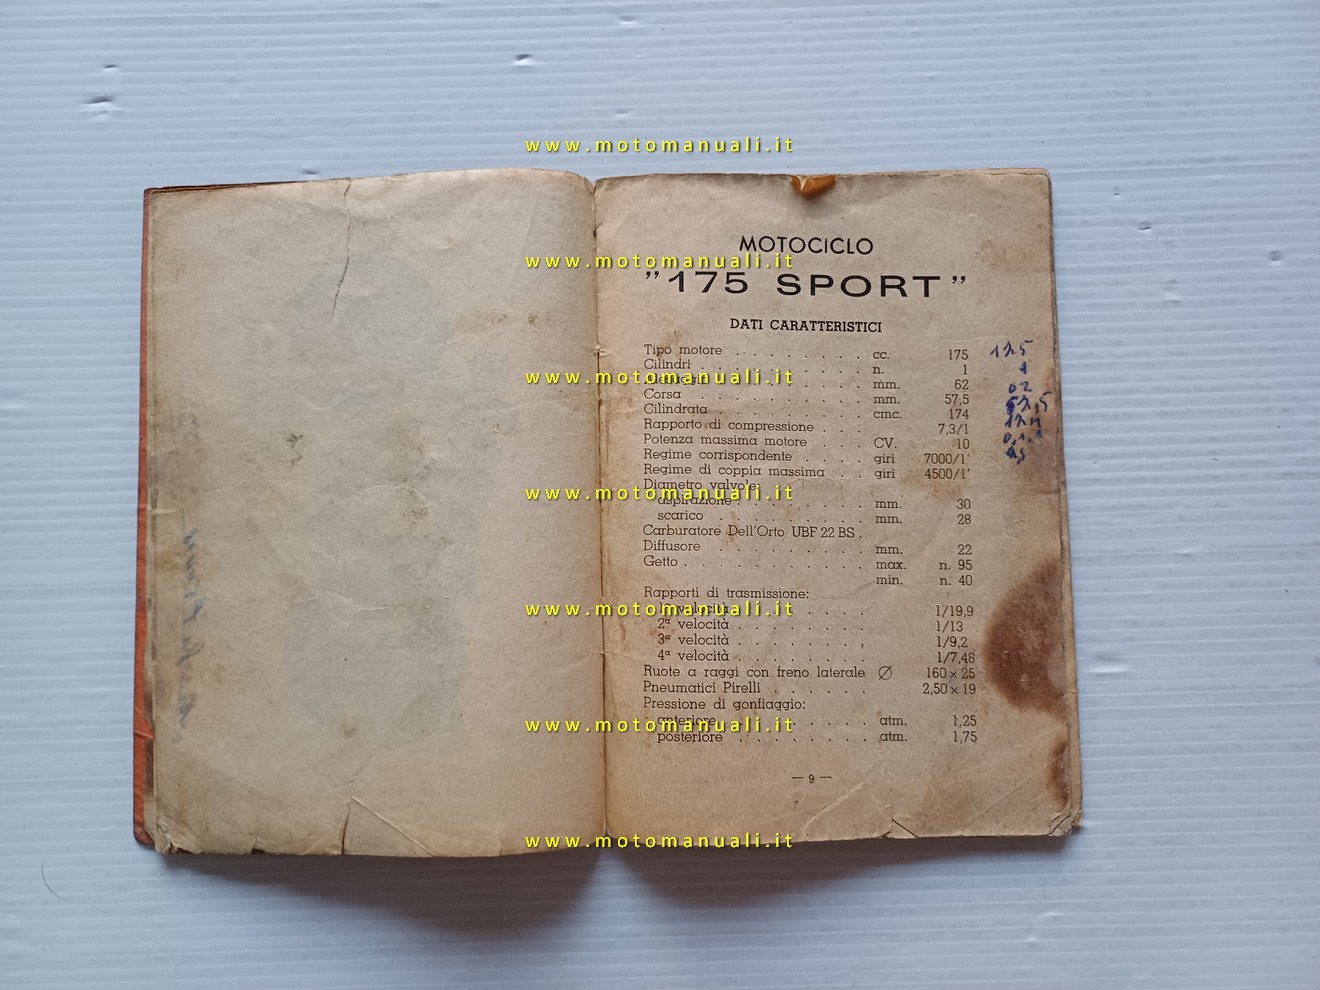 www.motomanuali.it
MOTOCICLO
www.motomanuali.it
"175 SPORT"
DATI CARATTERISTICI
Tipo motore . . . . . . . . . cc. 175
Cilindri . . . . . . . . . n. 1
www.motomanuali.it
mm. 62
Corsa . . . . . . . . . mm. 57,5
Cilindrata . . . . . . . . . cmc. 174
Rapporto di compressione . . . 7,3/1
Potenza massima motore . . . CV. 10
Regime corrispondente . . . . giri 7000/1'
Regime di coppia massima . . giri 4500/1'
Diametro valvole:
www.motomanuali.it
aspirazione . . . . . . . . mm. 30
scarico . . . . . . . . . mm. 28
Carburatore Dell'Orto UBF 22 BS .
Diffusore . . . . . . . . mm. 22
Getto . . . . . . . . . . . max. n. 95
min. n. 40
Rapporti di trasmissione:
www.motomanuali.it
1ª velocità . . . . . . . . 1/19,9
2ª velocità . . . . . . . . 1/13
3ª velocità . . . . . . . . 1/9,2
4ª velocità . . . . . . . . 1/7,48
Ruote a raggi con freno laterale Ø 160 x 25
Pneumatici Pirelli . . . . . . 2,50 x 19
Pressione di gonfiaggio:
www.motomanuali.it
anteriore . . . . . . . . atm. 1,25
posteriore . . . . . . . . atm. 1,75
— 9 —
www.motomanuali.it